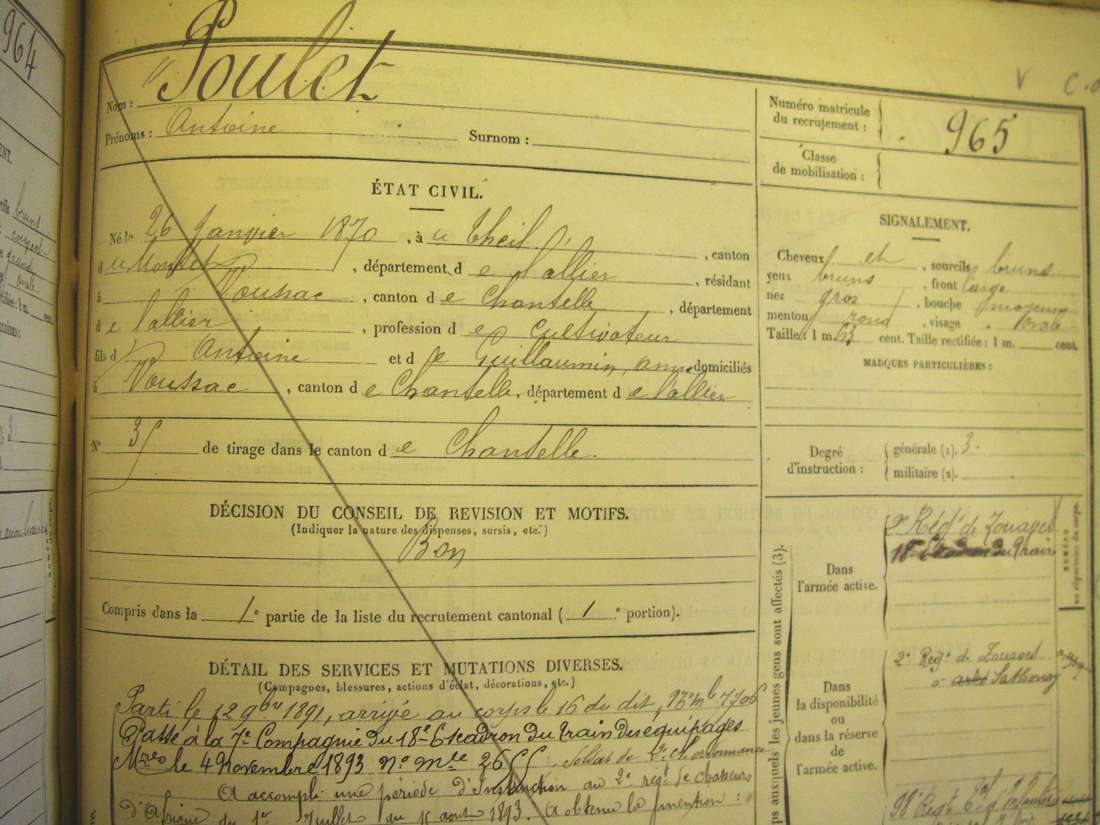 964
Nom : Poulet
Prénoms : Antoine Surnom :
Numéro matricule du recrutement : 965
Classe de mobilisation :
ÉTAT CIVIL.
Né le 26 Janvier 1870, à u Theil, canton
d u Montet, département d e l'allier, résidant
à Voussac, canton d e Chantelle, département
d e l'allier, profession d e Cultivateur
fils d Antoine et d e Guillaumin, domiciliés
à Voussac, canton d e Chantelle, département d e l'allier
N° 35 de tirage dans le canton d e Chantelle.
SIGNALEMENT.
Cheveux et, sourcils bruns
yeux bruns, front large
nez gros, bouche moyenne
menton rond, visage ovale
Taille : 1 m. 63 cent. Taille rectifiée : 1 m. cent.
MARQUES PARTICULIÈRES :
Degré d'instruction : générale (1). 3.
militaire (2).
DÉCISION DU CONSEIL DE REVISION ET MOTIFS.
(Indiquer la nature des dispenses, sursis, etc.)
Bon
Compris dans la 1e partie de la liste du recrutement cantonal (1e portion).
DÉTAIL DES SERVICES ET MUTATIONS DIVERSES.
(Campagnes, blessures, actions d'éclat, décorations, etc.)
Parti le 12 9bre 1891, arrivé au corps le 16 du dit, Nº mle 7706
Passé à la 7e Compagnie du 18e Escadron du train des équipages
Mres le 4 Novembre 1893 No Mle 2655 Soldat de 2e cl. ordonnance
A accompli une période d'Instruction au 2e régt de chasseurs
d'Afrique du 1er Juillet au août 1893. A obtenu la mention :
ps auxquels les jeunes gens sont affectés (3).
Dans l'armée active.
2e Régt de Zouaves
18e Escadron du train
NUMÉRO
au répertoire du corps.
Dans la disponibilité ou dans la réserve de l'armée active.
2e Régt de Zouaves
à Sathonay
98e Régt d'Infanterie